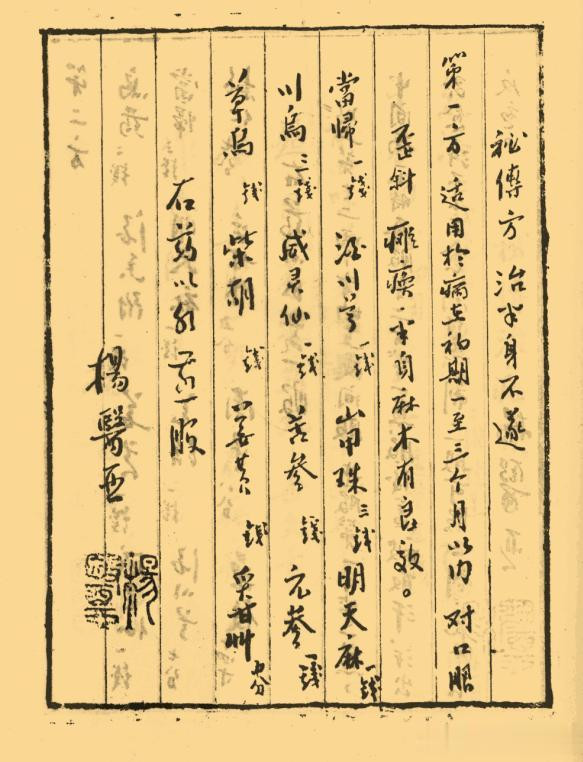 秘傳方 治半身不遂
第一方 适用於病在初期一至三个月以内 对口眼
歪斜 瘫痪 半身麻木有良效。
當歸一錢 酒川芎一錢 山甲珠三錢 明天麻一錢
川烏三錢 威灵仙一錢 苦参錢 元参一錢
草烏錢 柴胡錢 姜黄錢 炙甘艸
右药以 一服
楊醫亞